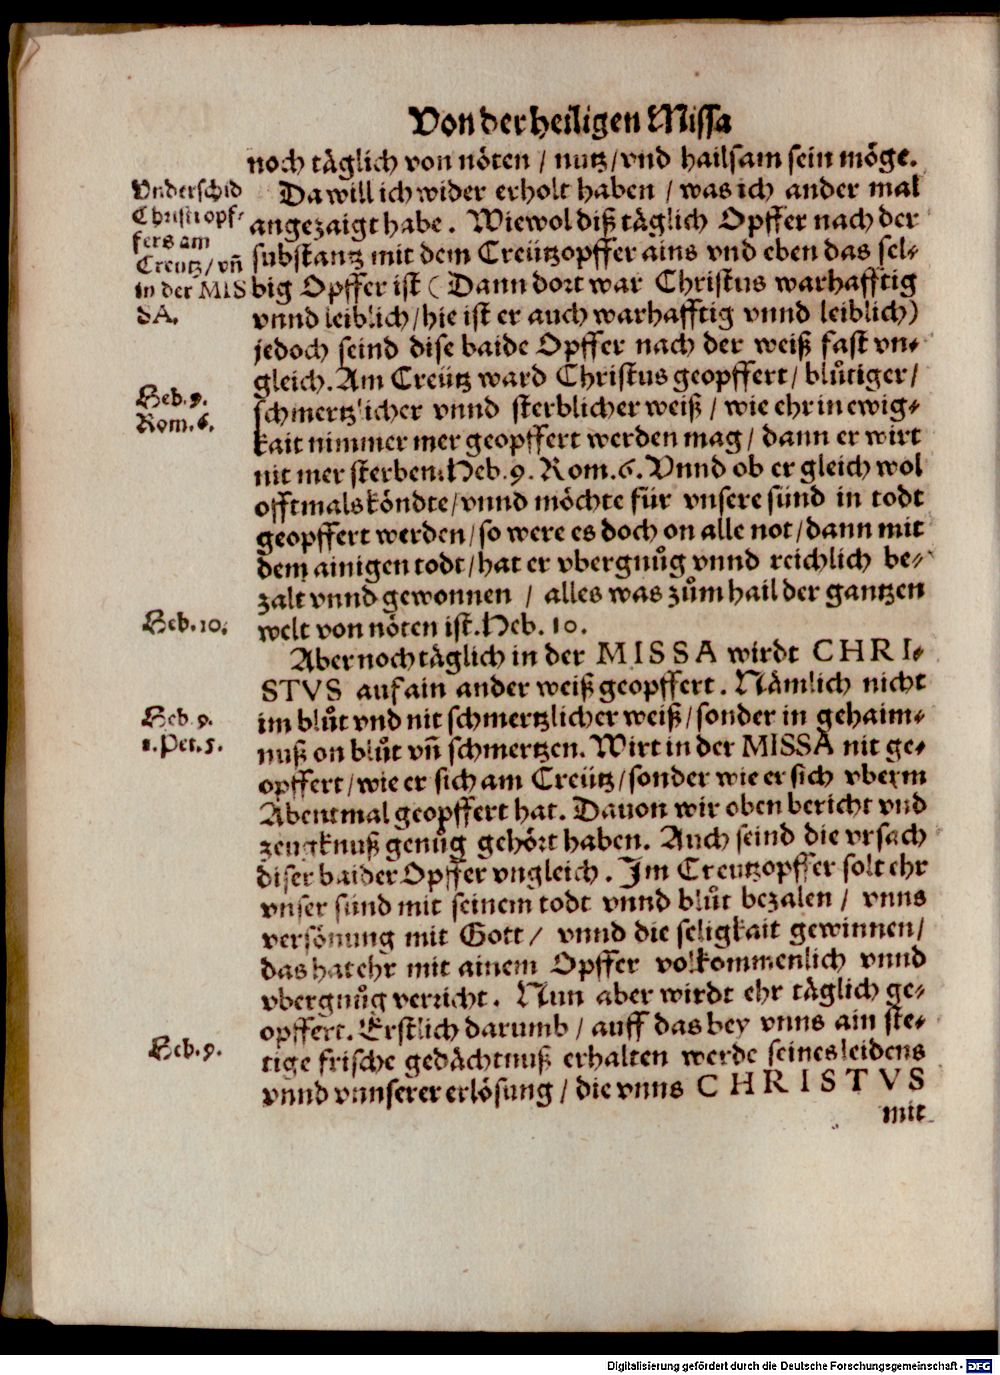 Von der heiligen Missa
noch täglich von nöten / nutz / vnd hailsam sein möge.
Vnderschid
Christi opf-
fers am
Creutz / vñ
in der MIS
SA.
Da will ich wider erholt haben / was ich ander mal
angezaigt habe. Wiewol diß täglich Opffer nach der
substantz mit dem Creützopffer ains vnd eben das sel-
big Opffer ist (Dann dort war Christus warhafftig
vnnd leiblich / hie ist er auch warhafftig vnnd leiblich)
jedoch seind dise baide Opffer nach der weiß fast vn-
gleich. Am Creütz ward Christus geopffert / blůtiger /
Heb. 9.
Rom. 6.
schmertzlicher vnnd sterblicher weiß / wie ehr in ewig-
kait nimmer mer geopffert werden mag / dann er wirt
nit mer sterben. Heb. 9. Rom. 6. Vnnd ob er gleich wol
offtmals köndte / vnnd möchte für vnsere sünd in todt
geopffert werden / so were es doch on alle not / dann mit
dem ainigen todt / hat er vbergnůg vnnd reichlich be-
zalt vnnd gewonnen / alles was zům hail der gantzen
Heb. 10.
welt von nöten ist. Heb. 10.
Aber noch täglich in der MISSA wirdt CHRI-
STVS auf ain ander weiß geopffert. Nämlich nicht
Heb. 9.
1. Pet. 5.
im blůt vnd nit schmertzlicher weiß / sonder in gehaim-
nuß on blůt vñ schmertzen. Wirt in der MISSA nit ge-
opffert / wie er sich am Creütz / sonder wie er sich vberm
Abentmal geopffert hat. Dauon wir oben bericht vnd
zeugknuß genůg gehört haben. Auch seind die vrsach
diser baider Opffer vngleich. Im Creutzopffer solt ehr
vnser sünd mit seinem todt vnnd blůt bezalen / vnns
versönung mit Gott / vnnd die seligkait gewinnen /
das hat ehr mit ainem Opffer volkommenlich vnnd
vbergnůg verricht. Nun aber wirdt ehr täglich ge-
opffert. Erstlich darumb / auff das bey vnns ain ste-
Heb. 9.
tige frische gedächtnuß erhalten werde seines leidens
vnnd vnnserer erlösung / die vnns CHRISTVS
mit
Digitalisierung gefördert durch die Deutsche Forschungsgemeinschaft - DFG